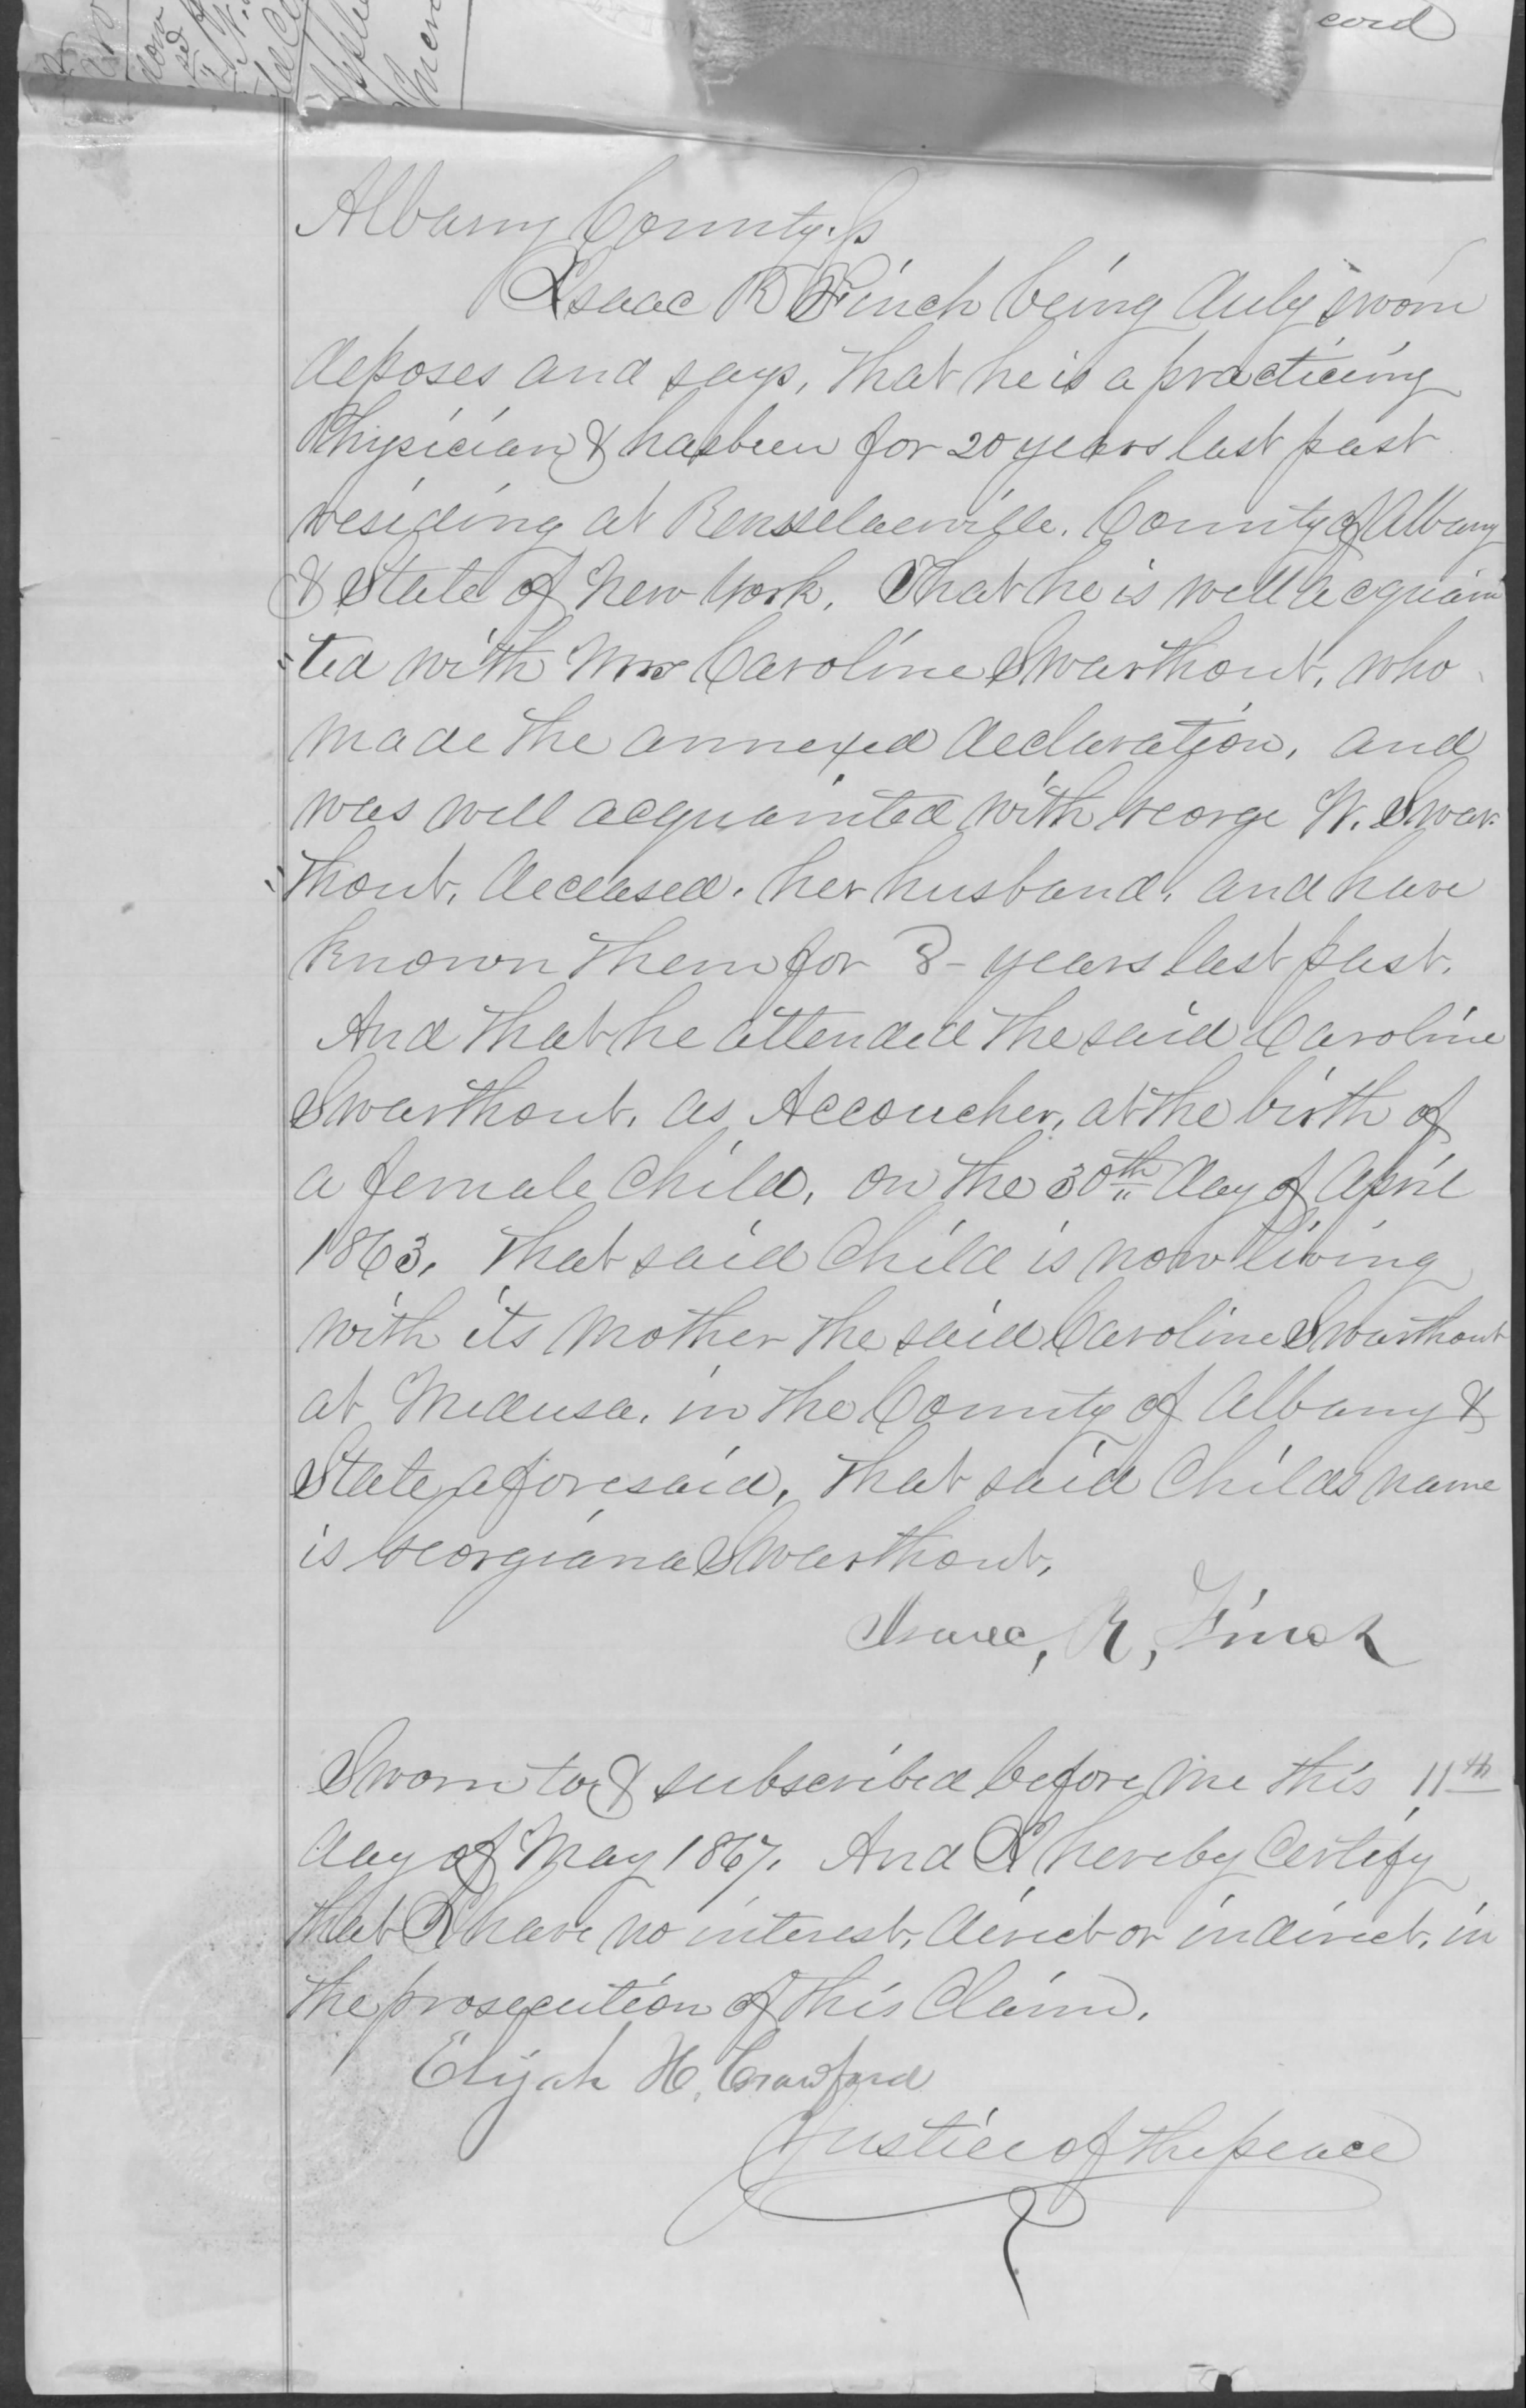 cord
Albany County. ss
Isaac R Finch being duly sworn
deposes and says, That he is a practicing
Physician & has been for 20 years last past
residing at Rensselaerville, County of Albany
& State of New York. That he is well acquain
=ted with Mrs Caroline Swarthout, who
made the annexed declaration, and
was well acquainted with George W. Swar-
=thout, deceased. her husband, and have
known them for 8- years last past.
And that he attended the said Caroline
Swarthout, as Accoucher, at the birth of
a female Child, on the 30th day of April
1863, That said Child is now living
with its Mother the said Caroline Swarthout
at Medusa, in the County of Albany &
State aforesaid, That said Childs name
is Georgiana Swarthout,
Isaac, R, Finch
Sworn to & subscribed before me this 11th
day of May 1867. And I hereby Certify
that I have no interest, direct or indirect, in
the prosecution of this Claim.
Elijah H. Crawford
Justice of the peace